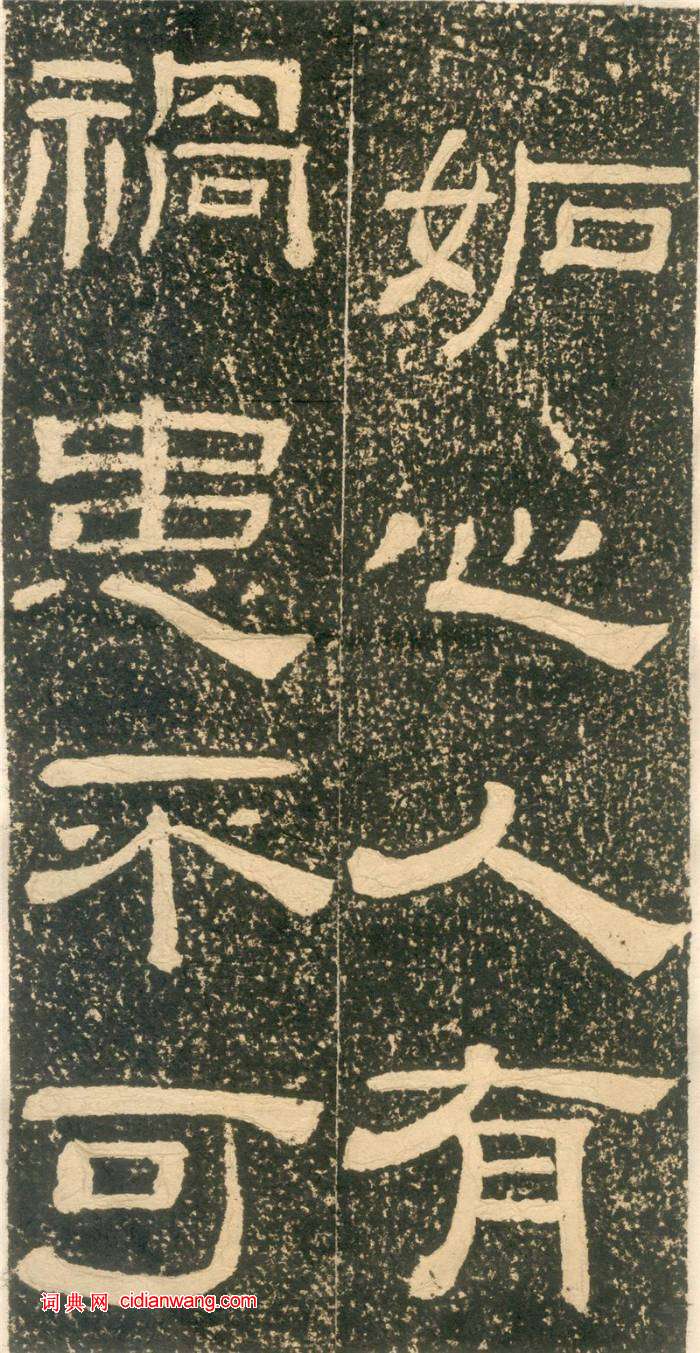 妬心人有
禍患不可
词典网 cidianwang.com